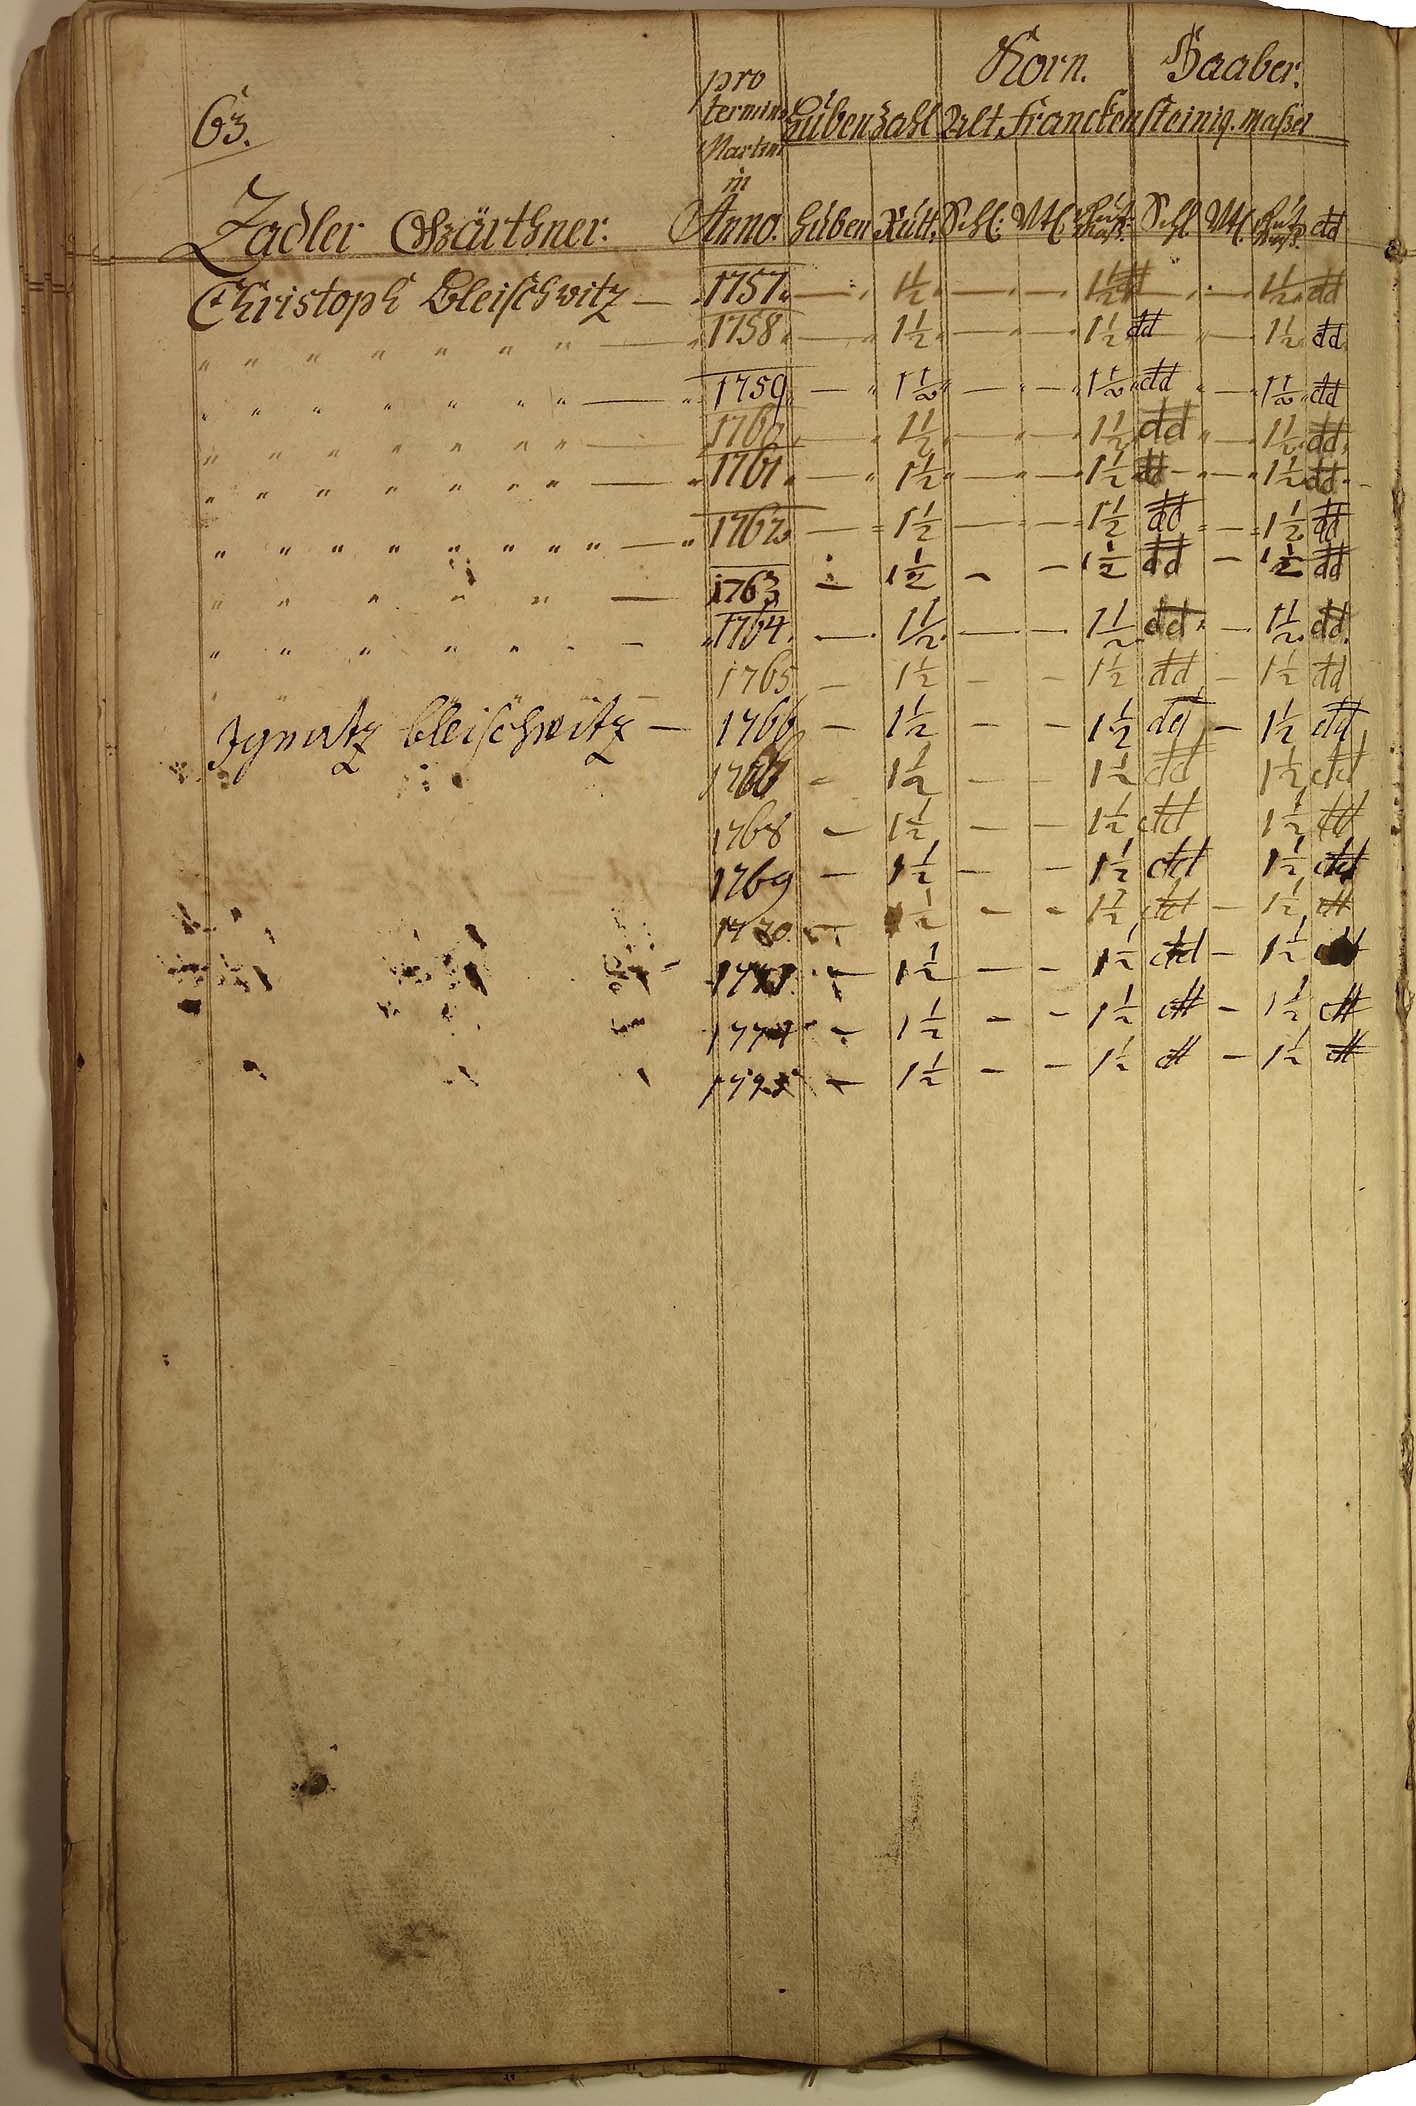 63.
pro termino Martini in Anno.
Korn. Haaber.
Hüben Zahl Alt, Franckensteinig. Maßes
Zadler Gärthner. Hüben Rutt. Schl: Vtl. Schl Vtl. dd
Christoph Bleischwitz — 1757 — 1½ — — 1½ dd — — 1½ dd
" " " " " " " — 1758 — 1½ — — 1½ dd " — 1½ dd
" " " " " " " — 1759 — 1½ — " — 1½ dd " — 1½ dd
" " " " " " — 1760 — 1½ — " — 1½ dd " — 1½ dd
" " " " " " " — 1761 — 1½ — " — 1½ dd — " — 1½ dd
" " " " " " " " " — 1762 — 1½ — — 1½ dd — 1½ dd
" " " " " — 1763 — 1½ — — 1½ dd — 1½ dd
" " " " " " — 1764 — 1½ — — 1½ dd — 1½ dd
" " — 1765 — 1½ — — 1½ dd — 1½ dd
Ignatz bleischwitz — 1766 — 1½ — — 1½ dd — 1½ dd
1767 — 1½ — — 1½ dd 1½ dd
1768 — 1½ — — 1½ dd 1½ dd
1769 — 1½ — — 1½ dd 1½ dd
1½ — — 1½ dd — 1½ dd
— 1½ — — 1½ dd — 1½
— 1½ — — 1½ dd — 1½ dd
— 1½ — — 1½ dd — 1½ dd